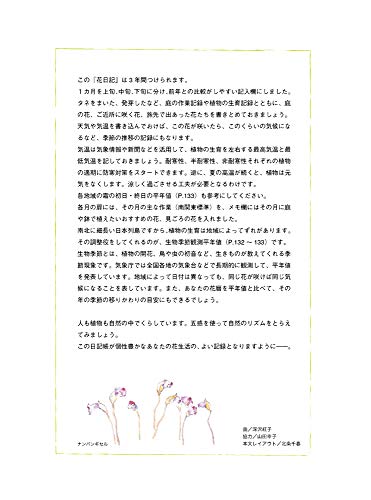 この『花日記』は3年間つけられます。
1カ月を上旬、中旬、下旬に分け、前年との比較がしやすい記入欄にしました。
タネをまいた、発芽したなど、庭の作業記録や植物の生育記録とともに、庭
の花、ご近所に咲く花、旅先で出あった花たちを書きとめておきましょう。
天気や気温を書き込んでおけば、この花が咲いたら、このくらいの気候にな
るなど、季節の推移の記録にもなります。
気温は気象情報や新聞などを活用して、植物の生育を左右する最高気温と最
低気温を記しておきましょう。耐寒性、半耐寒性、非耐寒性それぞれの植物
の適期に防寒対策をスタートできます。逆に、夏の高温が続くと、植物は元
気をなくします。涼しく過ごさせる工夫が必要となるわけです。
各地域の霜の初日・終日の平年値（P.133）も参考にしてください。
各月の扉には、その月の主な作業（南関東標準）を、メモ欄にはその月に庭
や鉢で植えたいおすすめの花、見ごろの花を入れました。
南北に細長い日本列島ですから、植物の生育は地域によってずれがあります。
その調整役をしてくれるのが、生物季節観測平年値（P.132～133）です。
生物季節とは、植物の開花、鳥や虫の初音など、生きものが教えてくれる季
節現象です。気象庁では全国各地の気象台などで長期的に観測して、平年値
を発表しています。地域によって日付は異なっても、同じ花が咲けば同じ気
候になることを表しています。また、あなたの花暦を平年値と比べて、その
年の季節の移りかわりの目安にもできるでしょう。
人も植物も自然の中でくらしています。五感を使って自然のリズムをとらえ
てみましょう。
この日記帳が個性豊かなあなたの花生活の、よい記録となりますように――。
画／深沢紅子
協力／山田幸子
本文レイアウト／北条千春
ナンバンギセル